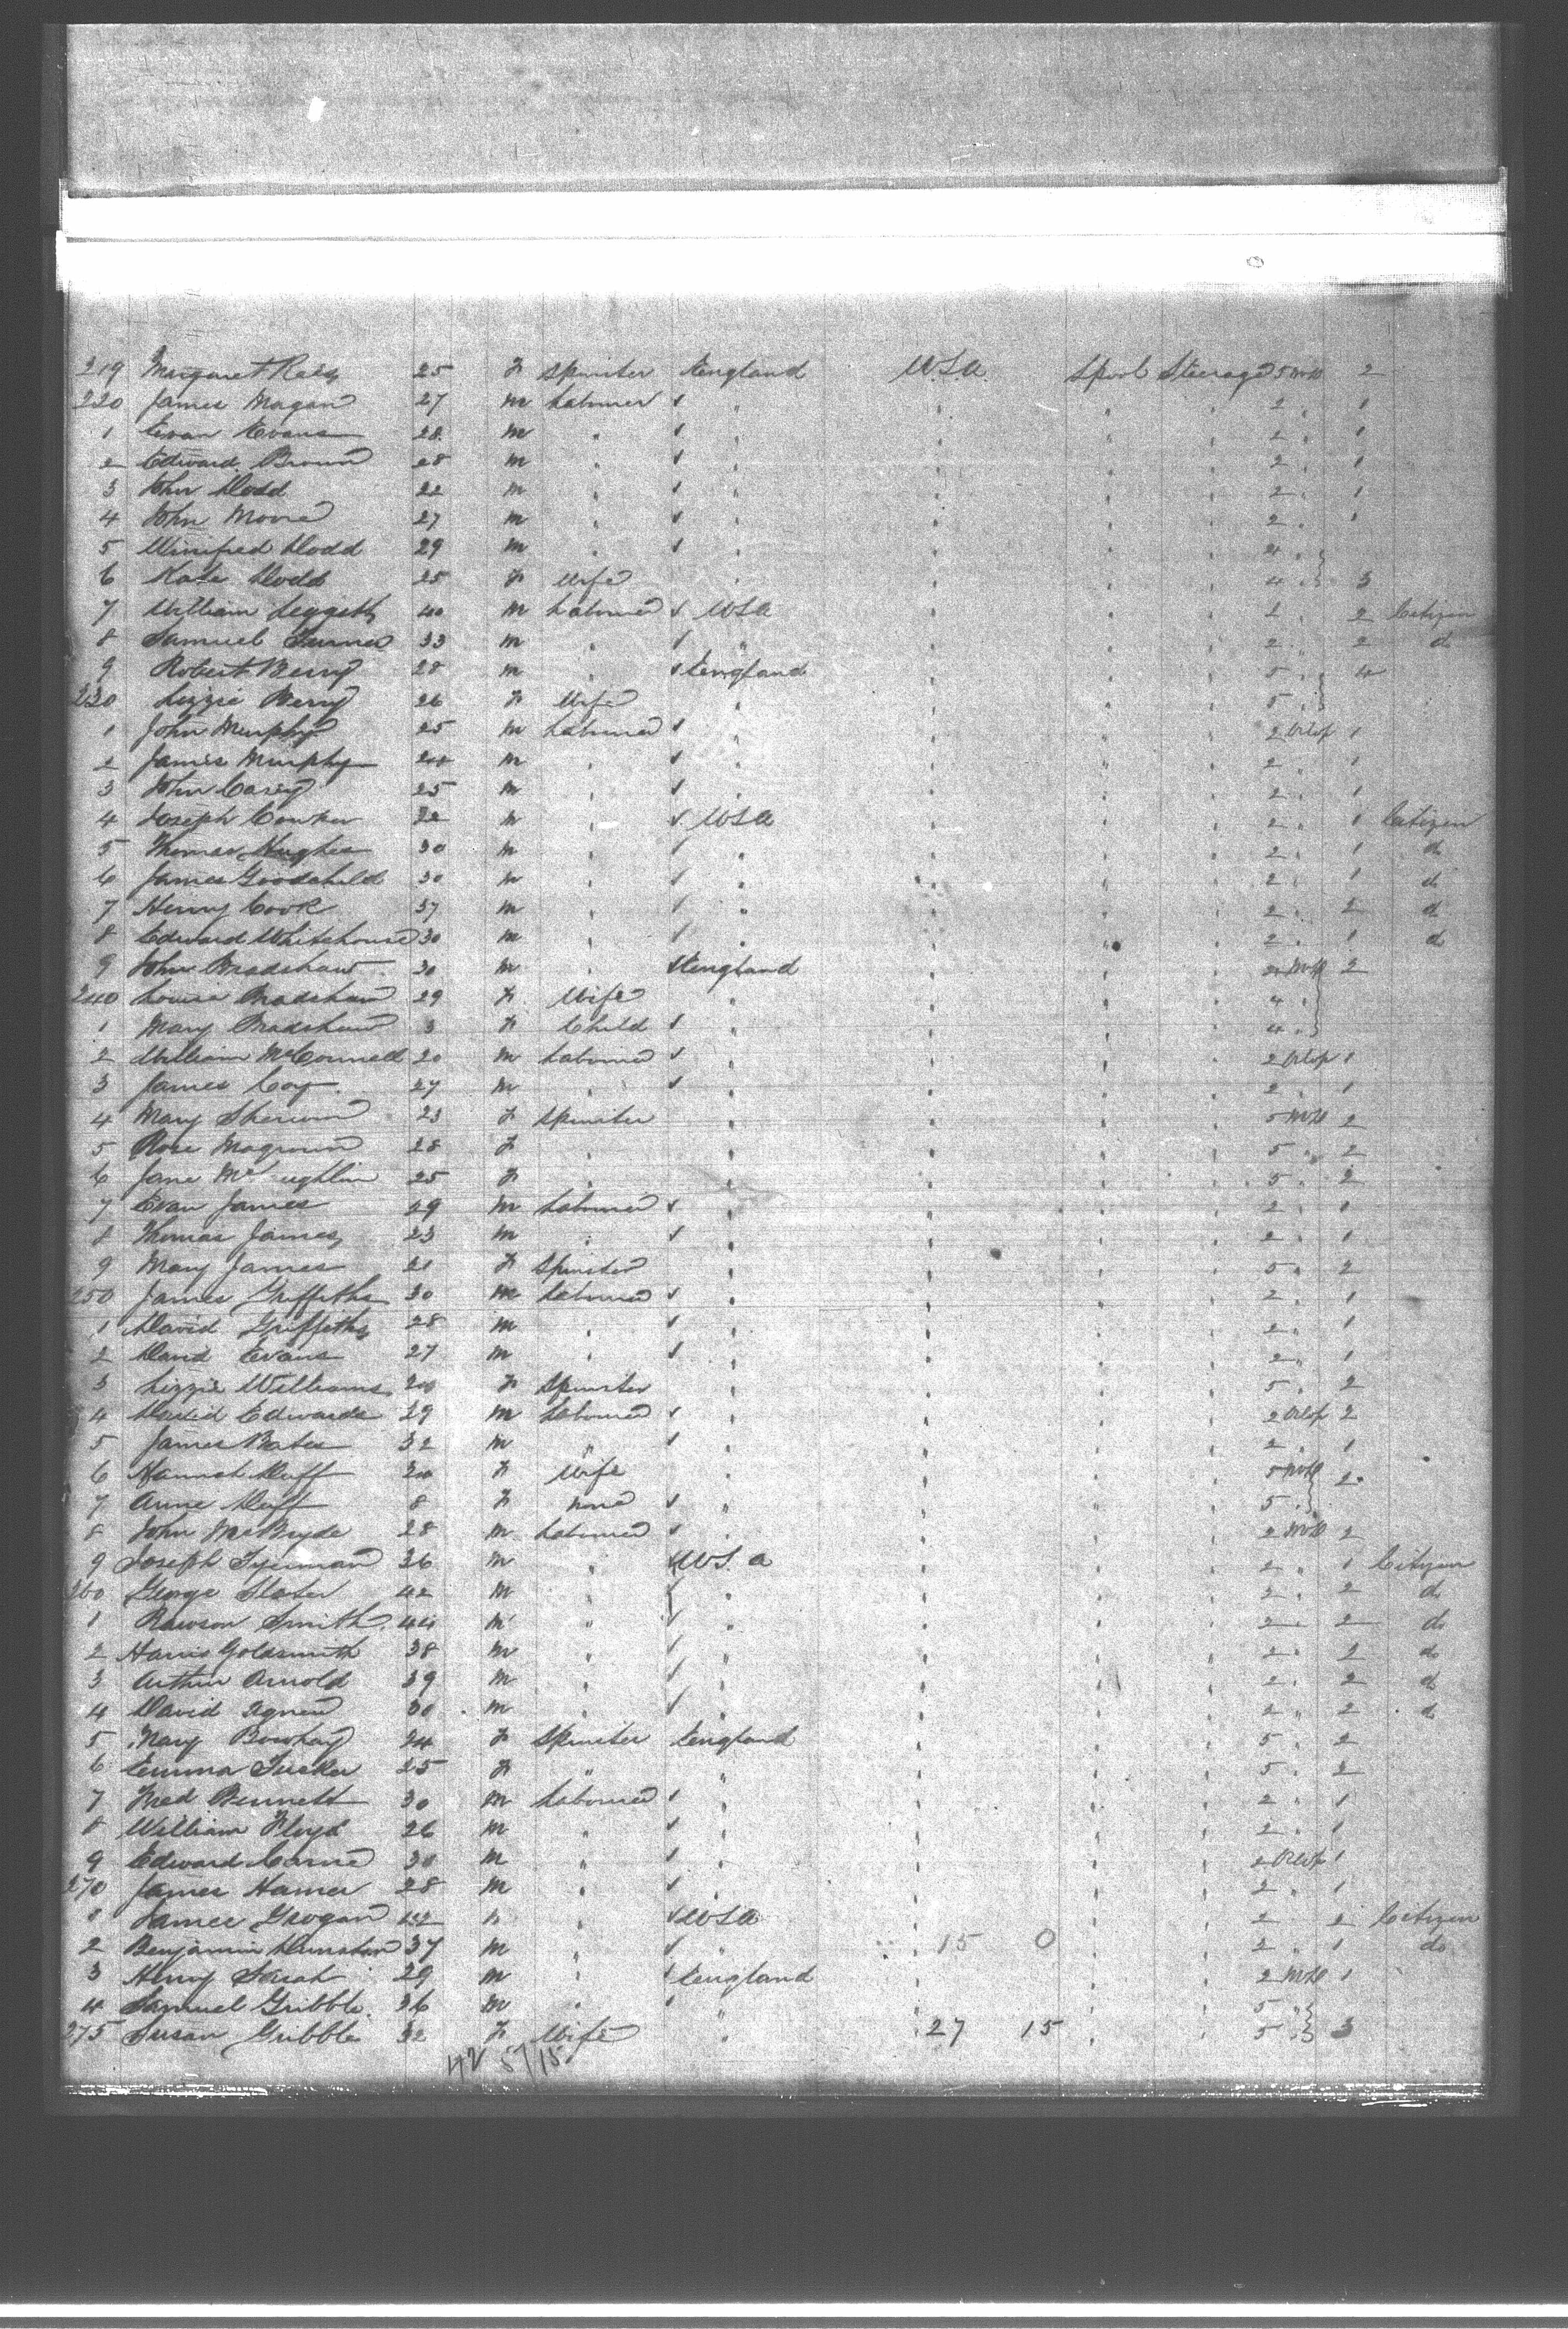 219 Margaret Rees 25 F Spinster England U.S.A. Lpool Steerage 5 2
220 James Magan 27 m Labourer " 2 " 1
1 Evan Evans 28 m " " 2 " 1
2 Edward Brown 28 m " " 2 " 1
3 John Dodd 22 m " " 2 " 1
4 John Moore 27 m " " 2 " 1
5 Winifred Dodd 29 m " " 4 "
6 Kate Dodd 25 F Wife " 4 " 3
7 William Leggett 40 m Labourer USA 2 " 2 Citizen
8 Samuel Turner 33 m " " 2 " 2 do
9 Robert Berry 28 m " England 5 " 4
230 Lizzie Berry 26 F Wife " 5 "
1 John Murphy 25 m Labourer " 2 Orlop 1
2 James Murphy 24 m " " 2 " 1
3 John Casey 25 m " " 2 " 1
4 Joseph 22 m " USA 2 " 1 Citizen
5 Thomas Hughes 30 m " " 2 " 1 do
6 James Goodchild 30 m " " 2 " 1 do
7 Henry Cook 37 m " " 2 " 2 do
8 Edward Whitehouse 30 m " " 2 " 1 do
9 John Bradshaw 30 m " England 2
240 Louisa Bradshaw 29 F Wife " 4 "
1 Mary Bradshaw 3 F Child " 4 "
2 William McConnell 20 m Labourer " 2 Orlop 1
3 James Coy 27 m " " 2 " 1
4 Mary Sherwin 23 F Spinster " 5 2
5 Rose 28 F " " 5 " 2
6 Jane 25 F " " 5 " 2
7 Evan James 29 m Labourer " 2 " 1
8 Thomas James 23 m " " 2 " 1
9 Mary James 21 F Spinster " 5 " 2
250 James Griffiths 30 m Labourer " 2 " 1
1 David Griffiths 28 m " " 2 " 1
2 David Evans 27 m " " 2 " 1
3 Lizzie Williams 20 F Spinster " 5 " 2
4 David Edwards 29 m Labourer " 2 Orlop 2
5 James Bates 32 m " " 2 " 1
6 Hannah Duff 30 F Wife " 5 2
7 Anne Duff 8 F none " 5 "
8 John McBryde 28 m Labourer " 2 2
9 Joseph 36 m " U.S.A 2 " 1 Citizen
260 George Slater 42 m " " 2 " 2 do
1 Rawson Smith 44 m " " 2 " 2 do
2 Harris Goldsmith 38 m " " 2 " 2 do
3 Arthur Arnold 39 m " " 2 " 2 do
4 David Agnew 30 m " " 2 " 2 do
5 Mary Bowhay 24 F Spinster England 5 " 2
6 Emma Tucker 25 F " " 5 " 2
7 Fred Bennett 30 m Labourer " 2 " 1
8 William Floyd 26 m " " 2 " 1
9 Edward Carne 30 m " " 2 Orlop 1
270 James Hamer 28 m " " 2 " 1
1 James Grogan 42 " USA 2 " 2 Citizen
2 Benjamin Dunstan 37 m " " 15 0 2 " 1 do
3 Henry Sarah 29 m " England 2 1
4 Samuel Gribble 36 m " " 5 "
275 Susan Gribble 32 F Wife " 27 15 5 " 3
42 57/15